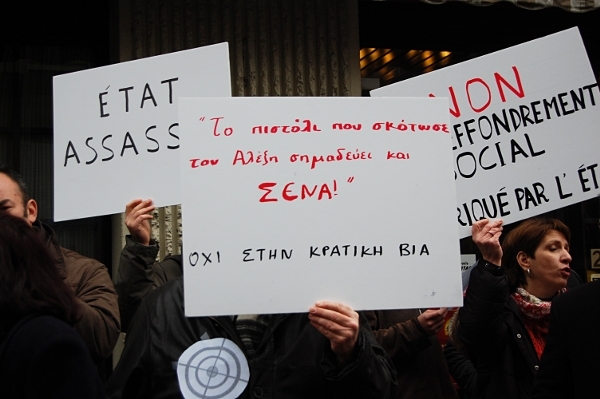 ÉTAT
ASSASS
"Το πιστόλι που σκότωσε
τον Αλέξη σημαδεύει και
ΣΕΝΑ!"
ΟΧΙ ΣΤΗΝ ΚΡΑΤΙΚΗ ΒΙΑ
NON
EFFONDREMENT
SOCIAL
RIQUÉ PAR L'ÉT